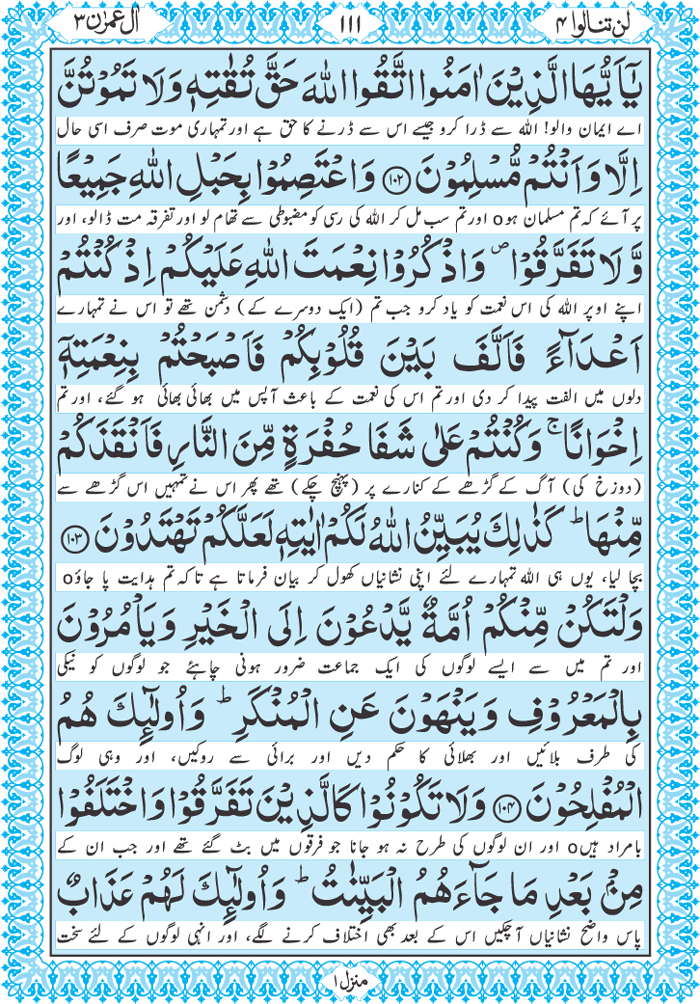 لن تنالوا ۴
۱۱۱
اٰل عمرٰن ۳
یٰۤاَیُّهَا الَّذِیْنَ اٰمَنُوا اتَّقُوا اللّٰهَ حَقَّ تُقٰتِهٖ وَلَا تَمُوْتُنَّ
اے ایمان والو! اللہ سے ڈرا کرو جیسے اس سے ڈرنے کا حق ہے اور تمہاری موت صرف اسی حال
اِلَّا وَاَنْتُمْ مُّسْلِمُوْنَ ﴿۱۰۲﴾ وَاعْتَصِمُوْا بِحَبْلِ اللّٰهِ جَمِیْعًا
پر آئے کہ تم مسلمان ہوo اور تم سب مل کر اللہ کی رسی کو مضبوطی سے تھام لو اور تفرقہ مت ڈالو، اور
وَّلَا تَفَرَّقُوْا ۪ وَاذْكُرُوْا نِعْمَتَ اللّٰهِ عَلَیْكُمْ اِذْ كُنْتُمْ
اپنے اوپر اللہ کی اس نعمت کو یاد کرو جب تم (ایک دوسرے کے) دشمن تھے تو اس نے تمہارے
اَعْدَآءً فَاَلَّفَ بَیْنَ قُلُوْبِكُمْ فَاَصْبَحْتُمْ بِنِعْمَتِهٖۤ
دلوں میں الفت پیدا کر دی اور تم اس کی نعمت کے باعث آپس میں بھائی بھائی ہو گئے، اور تم
اِخْوَانًا ۚ وَكُنْتُمْ عَلٰی شَفَا حُفْرَةٍ مِّنَ النَّارِ فَاَنْقَذَكُمْ
(دوزخ کی) آگ کے گڑھے کے کنارے پر (پہنچ چکے) تھے پھر اس نے تمہیں اس گڑھے سے
مِّنْهَا ؕ كَذٰلِكَ یُبَیِّنُ اللّٰهُ لَكُمْ اٰیٰتِهٖ لَعَلَّكُمْ تَهْتَدُوْنَ ﴿۱۰۳﴾
بچا لیا، یوں ہی اللہ تمہارے لئے اپنی نشانیاں کھول کر بیان فرماتا ہے تاکہ تم ہدایت پا جاؤo
وَلْتَكُنْ مِّنْكُمْ اُمَّةٌ یَّدْعُوْنَ اِلَی الْخَیْرِ وَیَاْمُرُوْنَ
اور تم میں سے ایسے لوگوں کی ایک جماعت ضرور ہونی چاہئے جو لوگوں کو نیکی
بِالْمَعْرُوْفِ وَیَنْهَوْنَ عَنِ الْمُنْكَرِ ؕ وَاُولٰٓئِكَ هُمُ
کی طرف بلائیں اور بھلائی کا حکم دیں اور برائی سے روکیں، اور وہی لوگ
الْمُفْلِحُوْنَ ﴿۱۰۴﴾ وَلَا تَكُوْنُوْا كَالَّذِیْنَ تَفَرَّقُوْا وَاخْتَلَفُوْا
بامراد ہیںo اور ان لوگوں کی طرح نہ ہو جانا جو فرقوں میں بٹ گئے تھے اور جب ان کے
مِنْۢ بَعْدِ مَا جَآءَهُمُ الْبَیِّنٰتُ ؕ وَاُولٰٓئِكَ لَهُمْ عَذَابٌ
پاس واضح نشانیاں آ چکیں اس کے بعد بھی اختلاف کرنے لگے، اور انہی لوگوں کے لئے سخت
منزل ۱